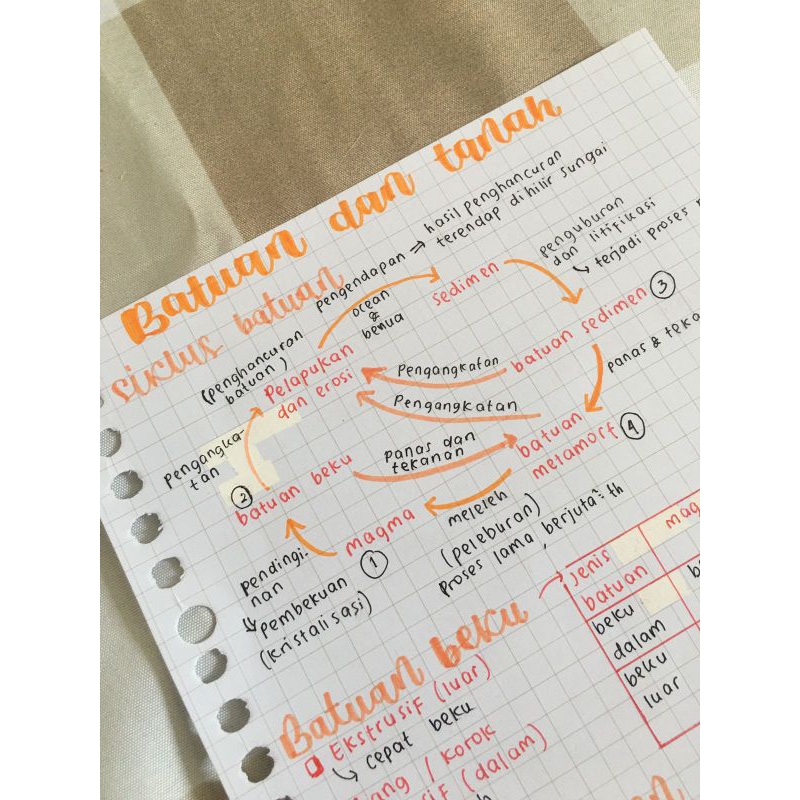 Batuan dan tanah
siklus batuan
pengendapan ⇒ hasil penghancuran
terendap di hilir sungai
ocean
&
benua
sedimen
penguburan
dan litifikasi
↳ terjadi proses
batuan sedimen ③
panas & teka
(penghancuran
batuan)
Pelapukan
dan erosi
Pengangkatan
Pengangkatan
Pengangka-
tan
②
batuan beku
panas dan
tekanan
batuan
melamorf ④
meleleh
(peleburan)
Proses lama, berjuta² th
magma
①
Pendingi-
nan
↳ Pembekuan
(Kristalisasi)
Batuan beku
Jenis
batuan
mag
beku
dalam
beku
luar
Ekstrusif (luar)
↳ cepat beku
ang / korok
sif (dalam)